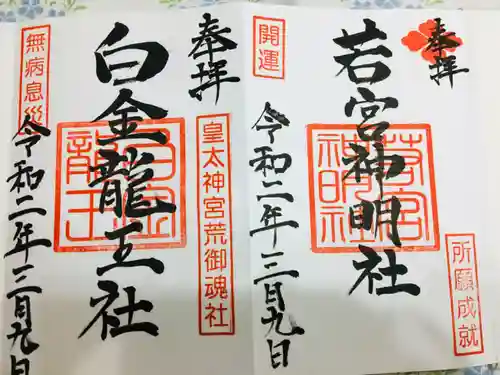 奉拝
若宮神明社
若宮神明社
所願成就
開運
令和二年三月九日
奉拝
皇大神宮荒御魂社
白金龍王社
白金龍王
無病息災
令和二年三月九日